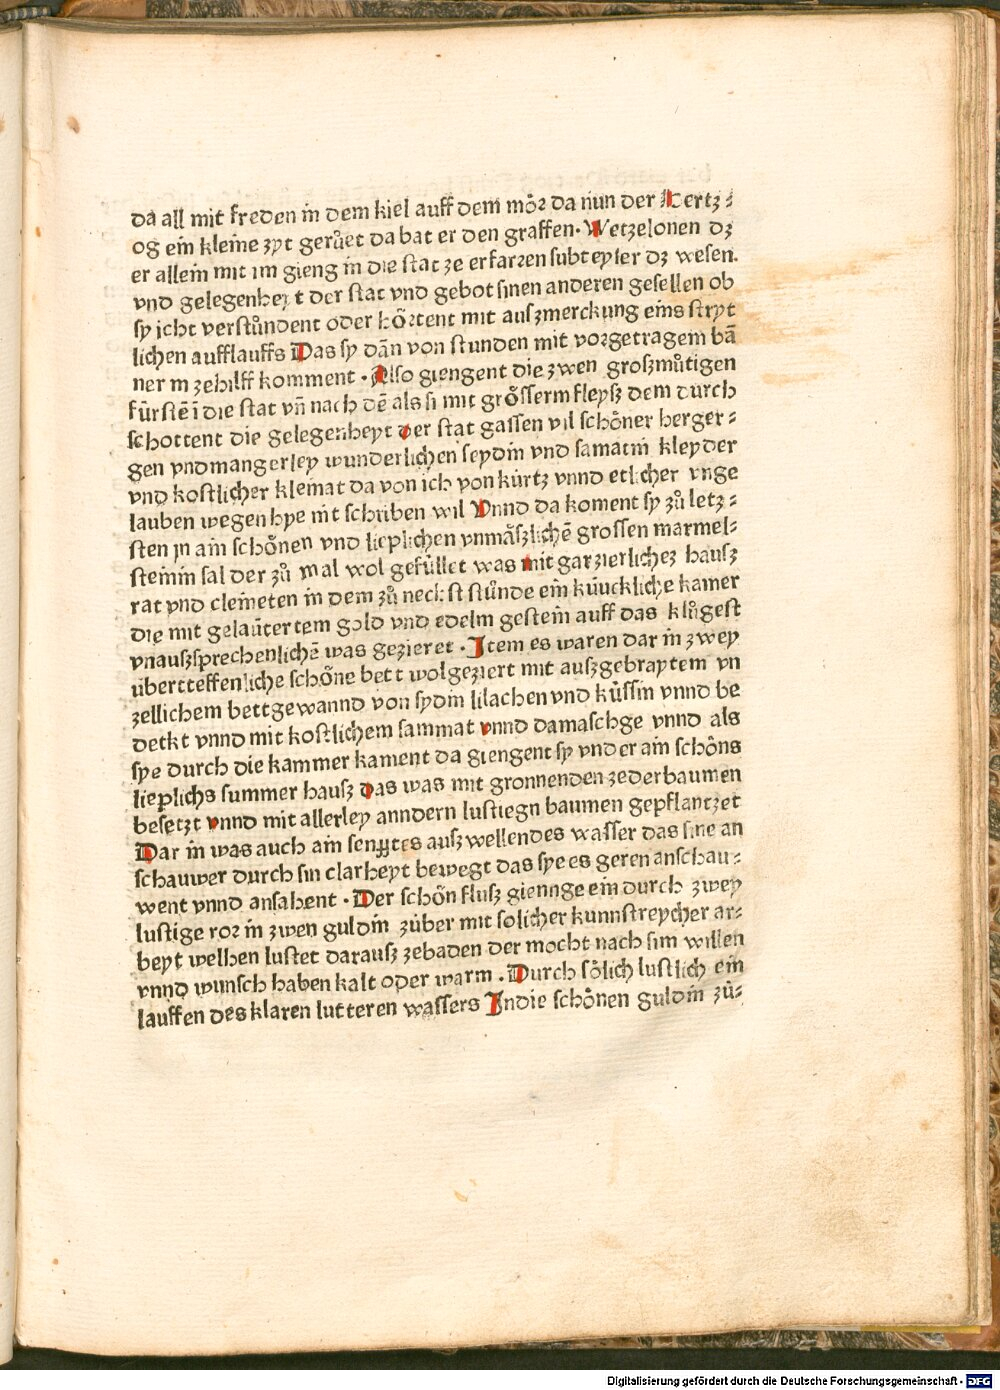 da all mit freden in dem kiel auff dem mőr da nun der Hertz⸗
og ein kleine zyt gerůet da bat er den graffen· Wetzelonen dz
er allein mit im gieng in die stat ze erfarzen subteyler dz wesen.
vnd gelegenheyt der stat vnd gebot sinen anderen gesellen ob
sy icht verstůndent oder hőrtent mit auszmerckung eins stryt
lichen aufflauffs Das sy dān von stunden mit vorgetragem bā
ner in zehilff komment · Also giengent die zwen groszmůtigen
fürstē ī die stat vn̄ nach dē als si mit grősserm fleysz dem durch
schottent die gelegenheyt der stat gassen vil schőner herger⸗
gen vnd mangerley wunderlichen seydin vnd samatin kleyder
vnd kostlicher kleinat da von ich von kürtz vnnd etlicher vnge
lauben wegen hye nit schriben wil Vnnd da koment sy zů letz⸗
sten jn ain schőnen vnd lieplichen vnmäszlichē grossen marmel⸗
steinin sal der zů mal wol gefüllet was mit gar zierlichez hausz
rat vnd cleineten in dem zů neckst stůnde ein küuckliche kamer
die mit gelaütertem gold vnd edelm gestein auff das klůgest
vnauszsprechenlichē was gezieret · Item es waren dar in zwey
übertteffenliche schőne bett wolgeziert mit auszgebraytem vn
zellichem bettgewannd von sydin lilachen vnd küssin vnnd be
deckt vnnd mit kostlichem sammat vnnd damaschge vnnd als
sye durch die kammer kament da giengent sy vnder ain schőns
lieplichs summer hausz das was mit gronnenden zederbaumen
besetzt vnnd mit allerley anndern lustiegn baumen gepflantzet
Dar in was auch ain senytes aufzwellendes wasser das sine an
schauwer durch sin clarheyt bewegt das sye es geren anschau⸗
went vnnd ansahent · Der schőn flusz giennge ein durch zwey
lustige ror in zwen guldin züber mit solicher kunnstreycher ar⸗
beyt welhen lustet darausz zebaden der mocht nach sim willen
vnnd wunsch haben kalt oder warm . Durch sőlich lustlich ein
lauffen des klaren lutteren wassers In die schőnen guldin zü⸗
Digitalisierung gefördert durch die Deutsche Forschungsgemeinschaft - DFG